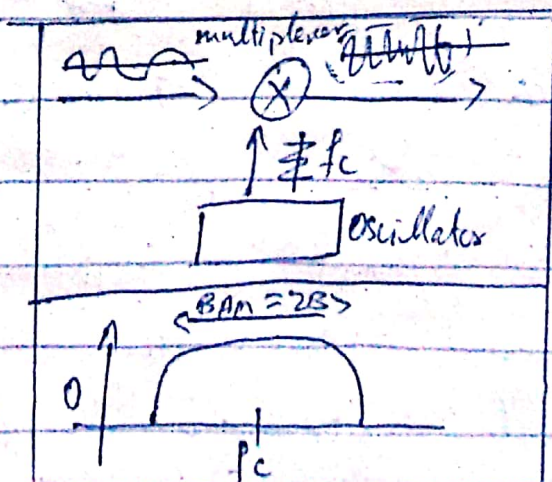 multiplexer
X
fc
Oscillator
BAM = 2B
0
fc